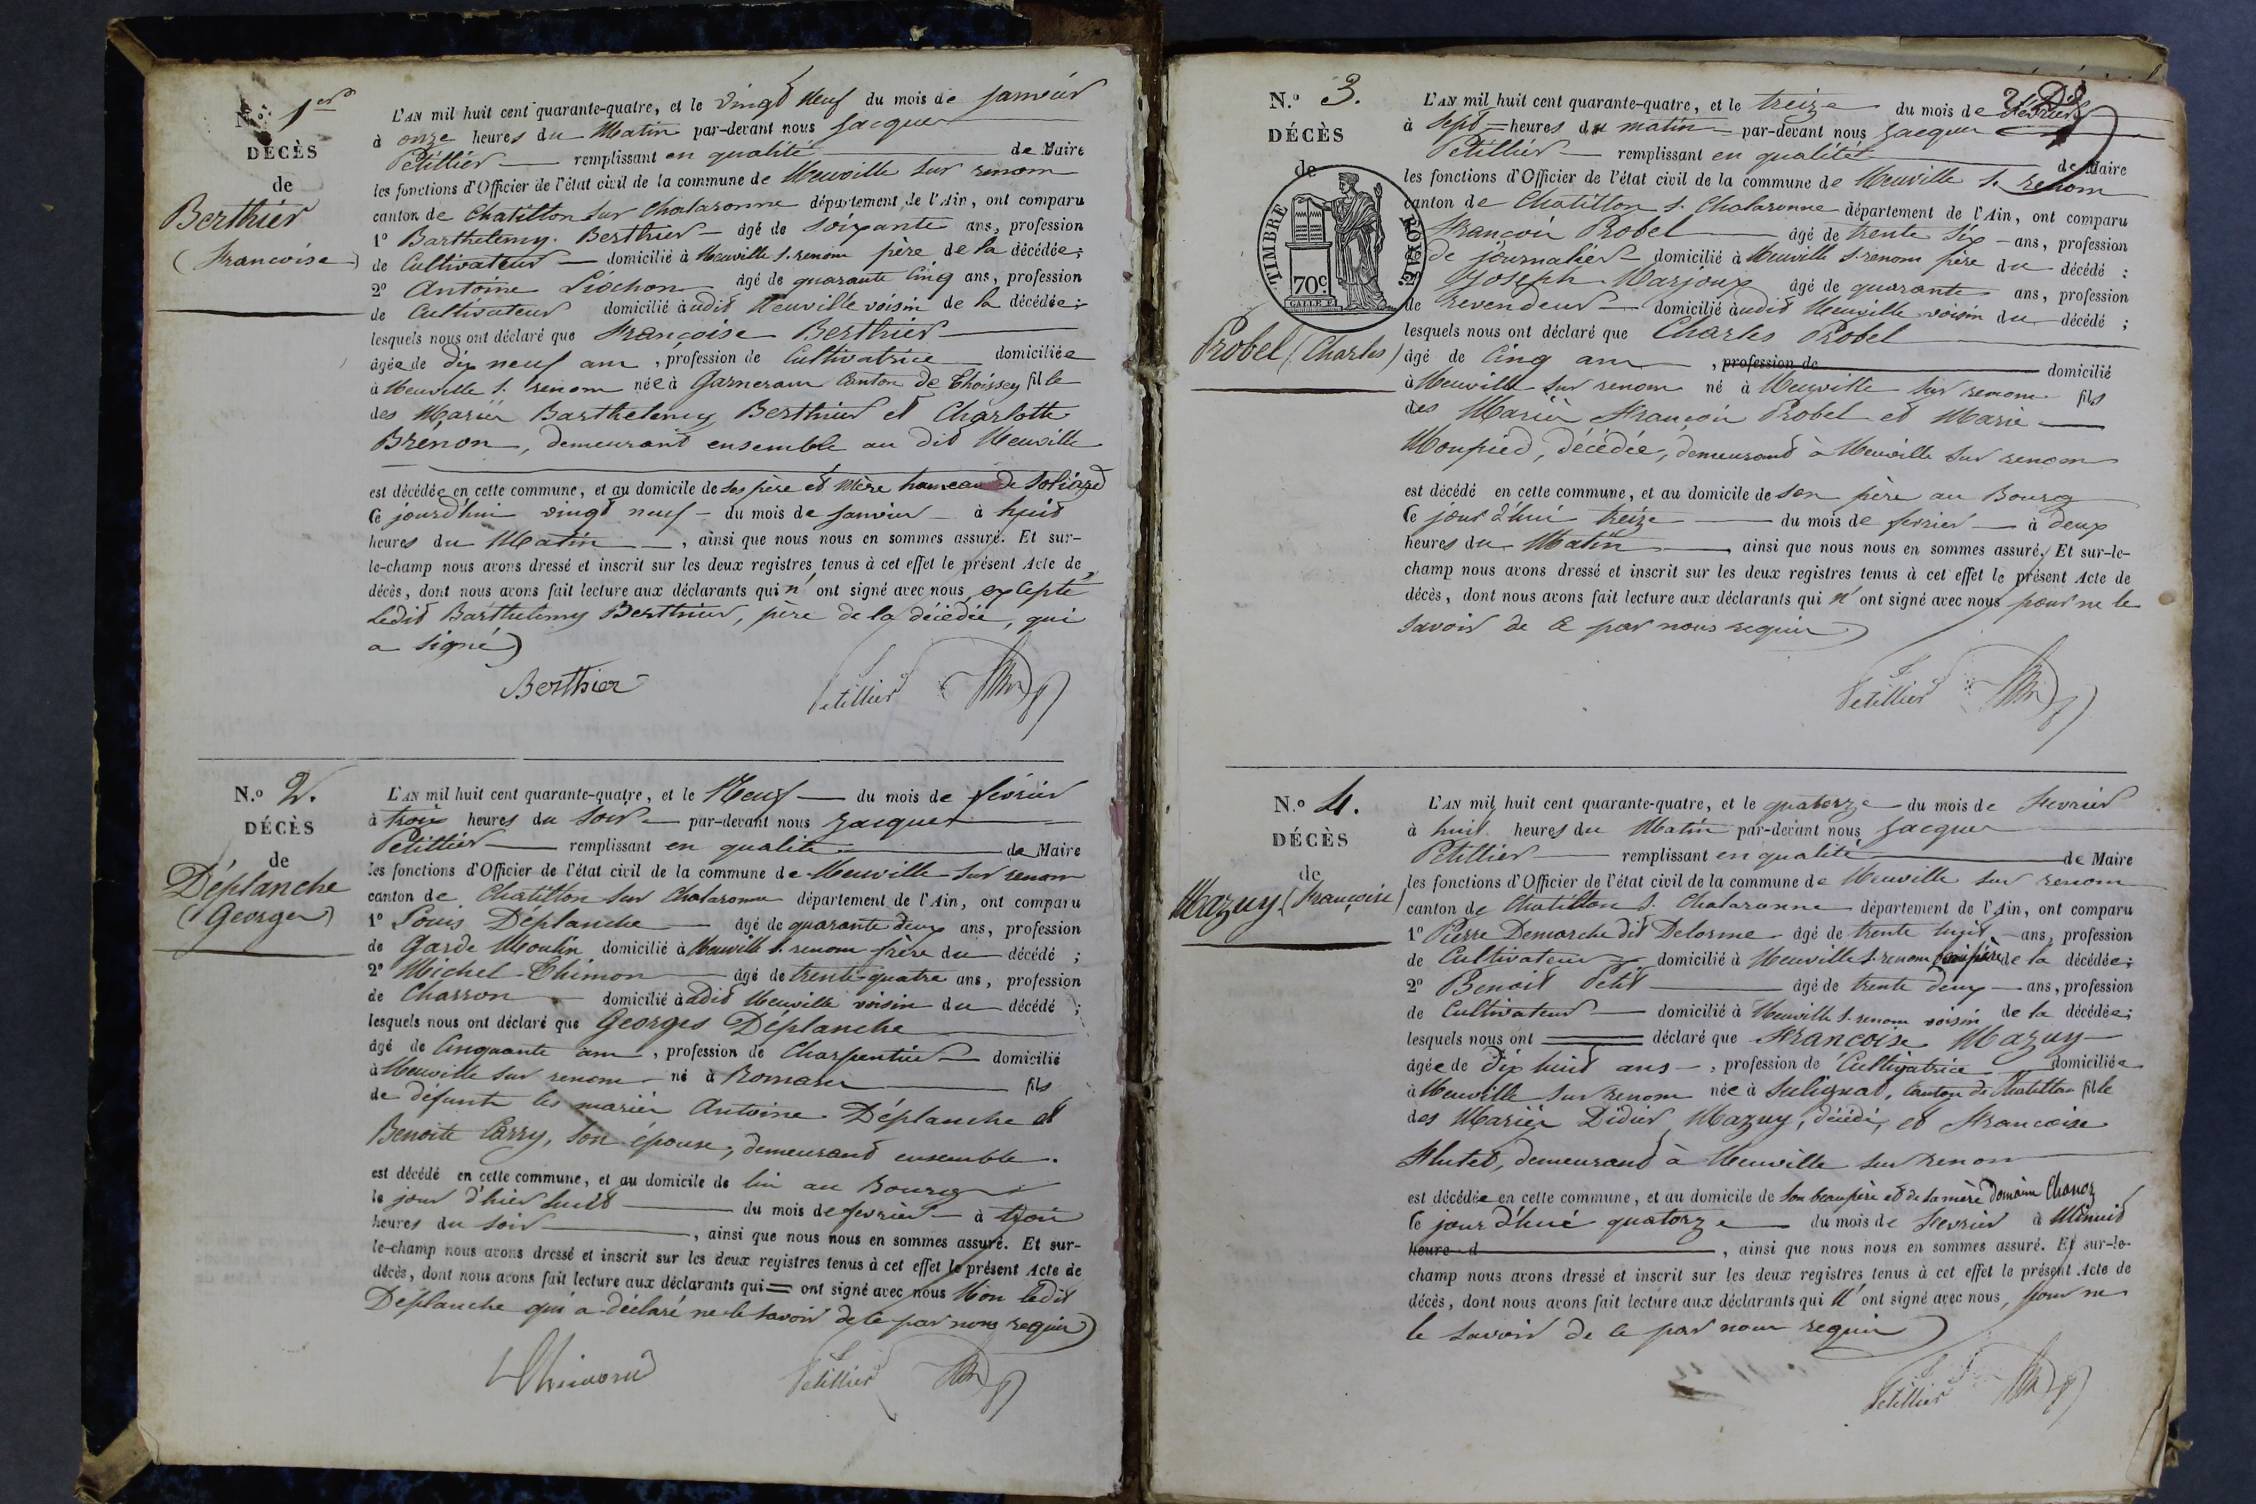 N.º 1er
DÉCÈS
de
Berthier
(Francoise)
L'AN mil huit cent quarante-quatre, et le vingt neuf du mois de Janvier
à onze heures du Matin par-devant nous Jacques
Petillier remplissant en qualité de Maire
les fonctions d'Officier de l'état civil de la commune de Neuville sur renom
canton de Chatillon sur Chalaronne département de l'Ain, ont comparu
1º Barthelemy Berthier âgé de soixante ans, profession
de Cultivateur domicilié à Neuville s. renom père de la décédée;
2º Antoine Liochon âgé de quarante Cinq ans, profession
de Cultivateur domicilié audit Neuville voisin de la décédée;
lesquels nous ont déclaré que Françoise Berthier
âgée de dix neuf ans, profession de Cultivatrice domiciliée
à Neuville s. renom née à Garnerans Canton de Thoissey fille
des Mariés Barthelemy Berthier et Charlotte
Brenon, demeurant ensemble au dit Neuville
est décédée en cette commune, et au domicile de ses père et Mère hameau de
Ce jourd'hui vingt neuf du mois de Janvier à huit
heures du Matin, ainsi que nous nous en sommes assuré. Et sur-
le-champ nous avons dressé et inscrit sur les deux registres tenus à cet effet le présent Acte de
décès, dont nous avons fait lecture aux déclarants qui n'ont signé avec nous, excepté
Ledit Barthelemy Berthier, père de la décédée, qui
a signé
Berthier Petillier
N.º 2.
DÉCÈS
de
Déplanche
(Georges)
L'AN mil huit cent quarante-quatre, et le Neuf du mois de février
à trois heures du Soir par-devant nous Jacques
Petillier remplissant en qualité de Maire
les fonctions d'Officier de l'état civil de la commune de Neuville sur renom
canton de Chatillon sur Chalaronne département de l'Ain, ont comparu
1º Louis Déplanche âgé de quarante deux ans, profession
de Garde Moulin domicilié à Neuville s. renom frère du décédé;
2º Michel Thimon âgé de trente-quatre ans, profession
de Charron domicilié audit Neuville voisin du décédé;
lesquels nous ont déclaré que Georges Déplanche
âgé de Cinquante ans, profession de Charpentier domicilié
à Neuville sur renom né à Romans fils
de défunts les mariés Antoine Déplanche et
Benoite Carry, son épouse, demeurant ensemble.
est décédé en cette commune, et au domicile de lui au Bourg
le jour d'hier huit du mois de fevrier à trois
heures du soir, ainsi que nous nous en sommes assuré. Et sur-
le-champ nous avons dressé et inscrit sur les deux registres tenus à cet effet le présent Acte de
décès, dont nous avons fait lecture aux déclarants qui ont signé avec nous Non ledit
Déplanche qui a déclaré ne le savoir de ce par nous requis
Thimon Petillier
N.º 3.
DÉCÈS
de
TIMBRE ROYAL
70c
Probel (Charles)
L'AN mil huit cent quarante-quatre, et le treize du mois de Février
à Sept heures du matin par-devant nous Jacques
Petillier remplissant en qualité de Maire
les fonctions d'Officier de l'état civil de la commune de Neuville s. renom
canton de Chatillon s. Chalaronne département de l'Ain, ont comparu
François Probel âgé de trente six ans, profession
de journalier domicilié à Neuville s. renom père du décédé;
Joseph Marjoux âgé de quarante ans, profession
de revendeur domicilié audit Neuville voisin du décédé;
lesquels nous ont déclaré que Charles Probel
âgé de Cinq ans, profession de domicilié
à Neuville sur renom né à Neuville sur renom fils
des Mariés François Probel et Marie
Monpied, décédée, demeurant à Neuville sur renom
est décédé en cette commune, et au domicile de son père au Bourg
Ce jour d'hui treize du mois de fevrier à deux
heures du Matin ainsi que nous nous en sommes assuré. Et sur-le-
champ nous avons dressé et inscrit sur les deux registres tenus à cet effet le présent Acte de
décès, dont nous avons fait lecture aux déclarants qui n'ont signé avec nous pour ne le
savoir de ce par nous requis
Petillier
N.º 4.
DÉCÈS
de
Mazuy (Françoise)
L'AN mil huit cent quarante-quatre, et le quatorze du mois de Fevrier
à huit heures du Matin par-devant nous Jacques
Petillier remplissant en qualité de Maire
les fonctions d'Officier de l'état civil de la commune de Neuville sur renom
canton de Chatillon s. Chalaronne département de l'Ain, ont comparu
1º Pierre Demarche dit Delorme âgé de trente huit ans, profession
de Cultivateur domicilié à Neuville s. renom beaupère de la décédée;
2º Benoit Petit âgé de trente deux ans, profession
de Cultivateur domicilié à Neuville s. renom voisin de la décédée;
lesquels nous ont déclaré que Françoise Mazuy
âgée de Dix huit ans, profession de Cultivatrice domiciliée
à Neuville sur renom née à Sulignat, Canton de Chatillon fille
des Mariés Didier Mazuy, décédé, et Francoise
Flutet, demeurant à Neuville sur renom
est décédée en cette commune, et au domicile de son beaupère et de sa mère Domaine Chanoz
Ce jour d'hui quatorze du mois de Fevrier à Minuit
heure d, ainsi que nous nous en sommes assuré. Et sur-le-
champ nous avons dressé et inscrit sur les deux registres tenus à cet effet le présent Acte de
décès, dont nous avons fait lecture aux déclarants qui n'ont signé avec nous, pour ne
le savoir de ce par nous requis
Petillier